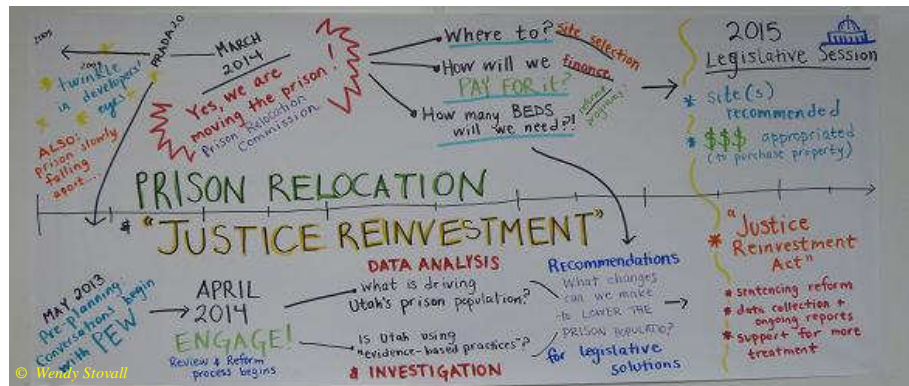 2005
PRADA 2.0
MARCH
2014
* twinkle
in developers'
eyes *
ALSO:
prison slowly
falling
apart...
Yes, we are
moving the prison!
Prison Relocation
Commission
Where to? site selection
How will we finance
PAY FOR it?
How many BEDS
will we need?!
2015
Legislative Session
* site(s)
recommended
* $$$ appropriated
(to purchase property)
PRISON RELOCATION
& "JUSTICE REINVESTMENT"
MAY 2013
Pre-planning
Conversations begin
with PEW
APRIL
2014
ENGAGE!
Review & Reform
process begins
DATA ANALYSIS
what is driving
Utah's prison population?
Is Utah using
"evidence-based practices"?
& INVESTIGATION
Recommendations
What changes
can we make
to LOWER THE
PRISON POPULATIO?
for legislative
solutions
* "Justice
Reinvestment
Act"
* sentencing reform
* data collection +
ongoing reports
* support for more
treatment
© Wendy Stovall